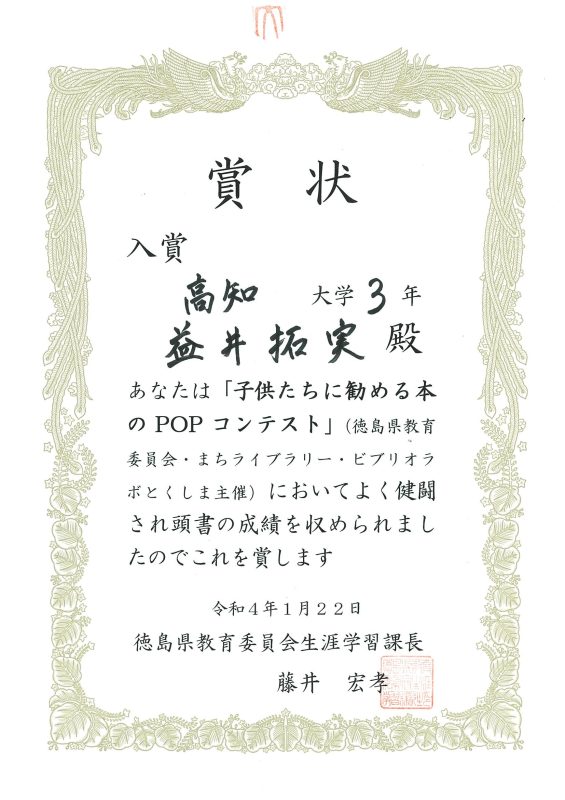 賞状
入賞
高知 大学3年
益井拓実殿
あなたは「子供たちに勧める本
のPOPコンテスト」(徳島県教育
委員会・まちライブラリー・ビブリオラ
ボとくしま主催)においてよく健闘
され頭書の成績を収められまし
たのでこれを賞します
令和4年1月22日
徳島県教育委員会生涯学習課長
藤井 宏孝